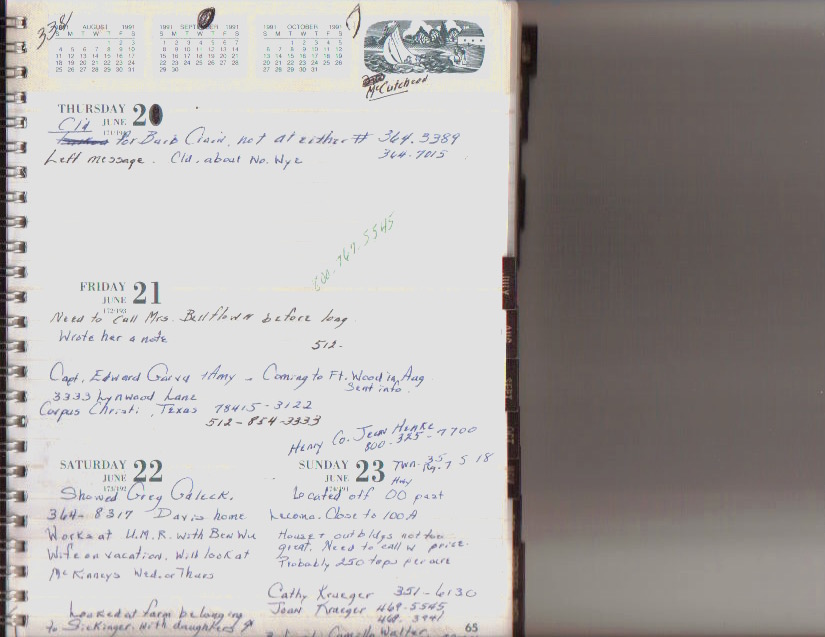 338/
1991 AUGUST 1991
S M T W T F S
1 2 3
4 5 6 7 8 9 10
11 12 13 14 15 16 17
18 19 20 21 22 23 24
25 26 27 28 29 30 31
1991 SEPTEMBER 1991
S M T W T F S
1 2 3 4 5 6 7
8 9 10 11 12 13 14
15 16 17 18 19 20 21
22 23 24 25 26 27 28
29 30
1991 OCTOBER 1991
S M T W T F S
1 2 3 4 5
6 7 8 9 10 11 12
13 14 15 16 17 18 19
20 21 22 23 24 25 26
27 28 29 30 31
McCutcheon
THURSDAY 20
JUNE
171/194
Cld
for Barb Clain, not at either # 364.3389
Left message. Cld. about No. Wye 364-7015
800-767-5545
FRIDAY 21
JUNE
172/193
Need to call Mrs. Bellflower before long
Wrote her a note
512-
Capt. Edward + Amy - Coming to Ft. Wood in Aug
Sent info.
3333 Lynwood Lane
Corpus Christi, Texas 78415-3122
512-854-3333
Henry Co. Jean Henke
800-325-7700
SATURDAY 22
JUNE
173/192
Showed Greg Galeck.
364-8317 Davis home
Works at U.M.R. with Ben Wu
Wife on vacation. Will look at
McKinneys Wed. or Thurs
Looked at farm belonging
to Sickinger. With daughters
SUNDAY 23
JUNE
174/191
Twn-35
Rg.7 S 18
Hwy
Located off OO past
Lecoma. Close to 100 A
House + outbldgs not too
great. Need to call w price.
Probably 250 tops per acre
Cathy Krueger 351-6130
Joan Krueger 469-5545
468-3941
Camella Walter
65
JULY
AUG
SEPT
OCT